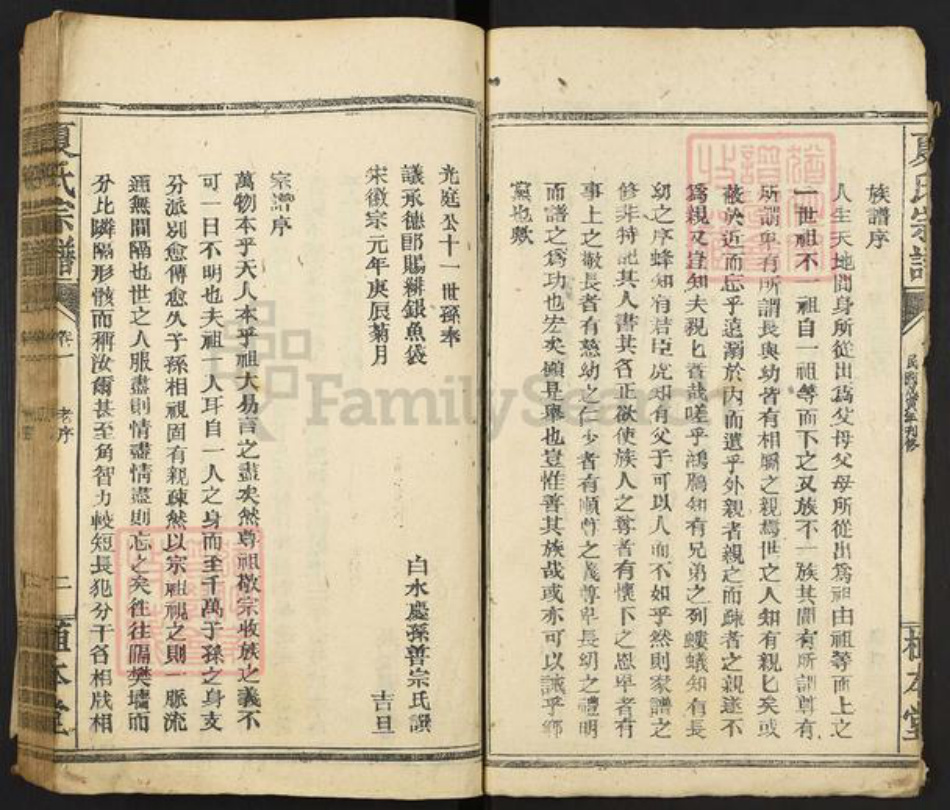 族譜序
人生天地間身所從出爲父母父母所從出爲祖由祖等而上之
一世祖不一祖自一祖等而下之又族不一族其間有所謂尊有
所謂卑有所謂長與幼皆有相屬之親焉世之人知有親匕矣或
蔽於近而忘乎遠溺於内而遺乎外親者親之而疎者之親遂不
爲親又豈知夫親匕者哉嗟乎鴻鴈知有兄弟之列螻蟻知有長
幼之序蜂知有君臣虎知有父子可以人而不如乎然則家譜之
修非特記其人書其名正欲使族人之尊者有懷下之恩卑者有
事上之敬長者有慈幼之仁少者有順尊之義尊卑長幼之禮明
而譜之爲功也宏矣顧是舉也豈惟善其族哉或亦可以誡乎鄉
黨也歟
夏氏宗譜
植本堂
光庭公十一世孫奉
議承德郎賜緋銀魚袋
白水慶孫善宗氏譔
宋徽宗元年庚辰菊月
吉旦
宗譜序
萬物本乎天人本乎祖大易言之盡矣然尊祖敬宗收族之義不
可一日不明也夫祖一人耳自一人之身而至千萬子孫之身支
分派別愈傳愈久子孫相視固有親疎然以宗祖視之則一脈流
通無間隔也世之人服盡則情盡情盡則忘之矣往往隔樊墻而
分比隣隔形骸而稱汝爾甚至角智力較短長犯分干名相戕相
夏氏宗譜
卷一
老序
二
植本堂
FamilySearch